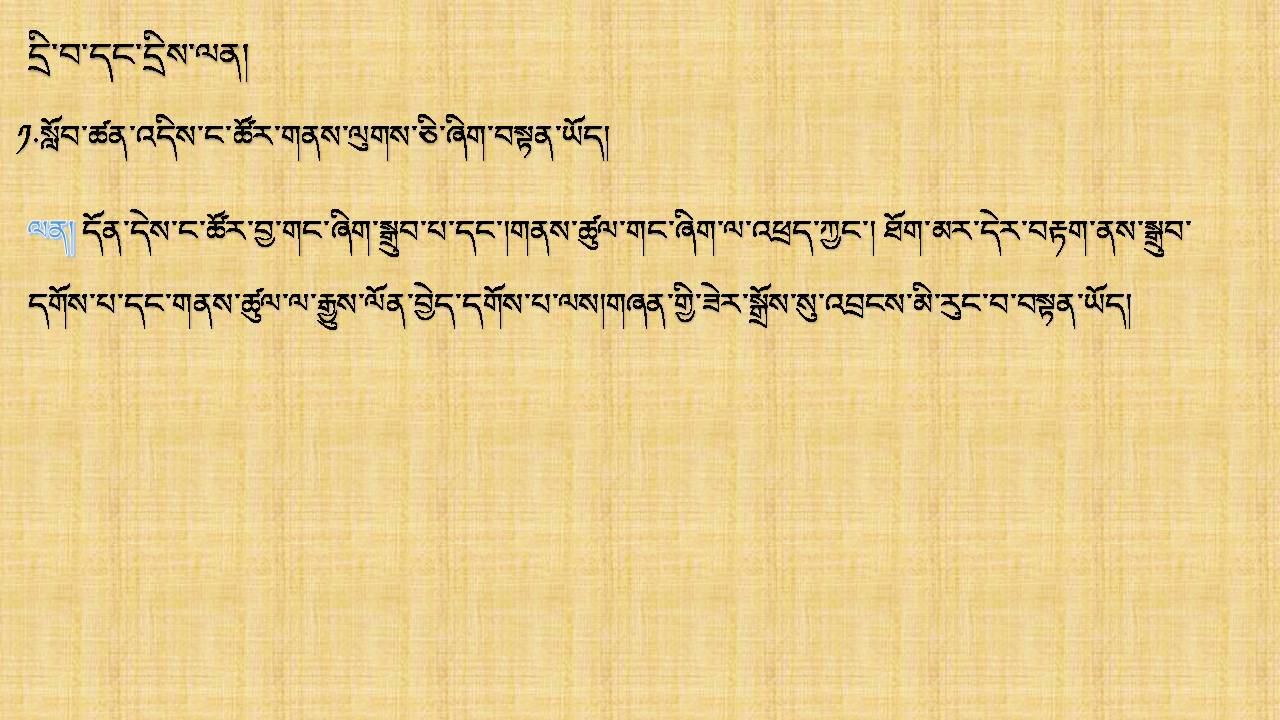 དྲི་བ་དང་དྲིས་ལན།
༡.སློབ་ཚན་འདིས་ང་ཚོར་གནས་ལུགས་ཅི་ཞིག་བསྟན་ཡོད།
ལན། དོན་དེས་ང་ཚོར་བྱ་གང་ཞིག་སྒྲུབ་པ་དང་།གནས་ཚུལ་གང་ཞིག་ལ་འཕྲད་ཀྱང་། ཐོག་མར་དེར་བརྟག་ནས་སྒྲུབ་
དགོས་པ་དང་གནས་ཚུལ་ལ་རྒྱུས་ལོན་བྱེད་དགོས་པ་ལས།གཞན་གྱི་ཟེར་སྒྲོས་སུ་འབྲངས་མི་རུང་བ་བསྟན་ཡོད།